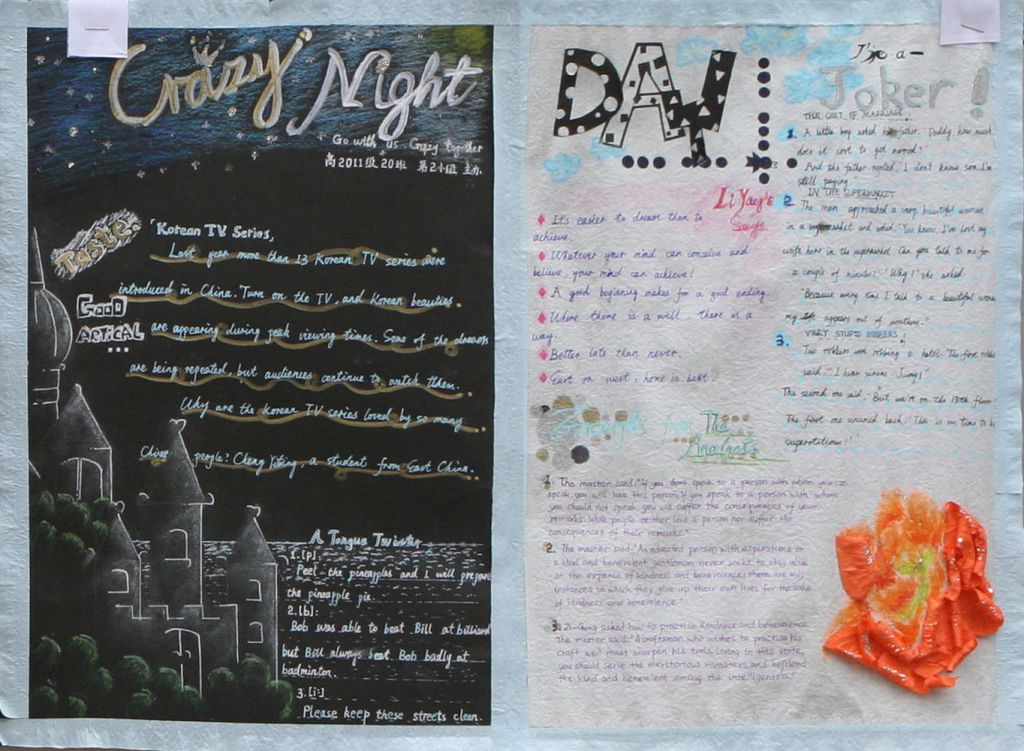 Crazy Night
Go with us Crazy Together
高2011级20班 第2小组 主办
Taste
Good
ARTICAL
...
「Korean TV Series」
Last year more than 13 Korean TV series were
introduced in China. Turn on the TV, and Korean beauties.
are appearing during peak viewing times. Some of the dramas
are being repeated, but audiences continue to watch them.
Why are the Korean TV series loved by so many
Chinese people? Cheng Yiting, a student from East China.
A Tongue Twister
1.[p].
Peel the pineapples and I will prepare
the pineapple pie.
2.[b]:
Bob was able to beat Bill at billiard
but Bill always beat Bob badly at
badminton.
3.[i:]
Please keep these streets clean.
DAY
Li Yang's
Says
It's easier to dream than to
achieve.
Whatever your mind can conceive and
believe, your mind can achieve!
A good beginning makes for a good ending.
Where there is a will, there is a
way.
Better late than never.
East or west, home is best.
Excerpts from The
Analects
1. The master said:"If you don't speak to a person whom you can
speak, you will lose this person; If you speak to a person with whom
you should not speak, you will suffer the consequences of your
remarks. Wise people neither lose a person nor suffer the
consequences of their remarks."
2. The master said:"An educated person with aspirations or
a kind and benevolent gentleman never seeks to stay alive
at the expense of kindness and benevolence; there are only
instances in which they give up their own lives for the sake
of kindness and benevolence."
3. Zi-Gung asked how to practise kindness and benevolence.
The master said:"A craftsman who wishes to practise his
craft well must sharpen his tools. Living in this state,
you should serve the meritorious ministers and befriend
the kind and benevolent among the intelligentsia."
I'm a
Joker!
THE COST OF MARRIAGE
1. A little boy asked his father. Daddy, how much
does it cost to get married?
And the father replied, I don't know son. I'm
still paying
IN THE SUPERMARKET
2. The man approached a very beautiful woman
in a supermarket and asked, "You know, I've lost my
wife here in the supermarket. Can you talk to me for
a couple of minutes? "Why?" she asked.
"Because every time I talk to a beautiful woman
my wife appears out of nowhere."
3. VERY STUPID ROBBERS
Two robbers are robbing a hotel. The first robber
said, "I hear sirens. Jump!"
The second one said, "But we're on the 13th floor!
The first one screamed back, "This is no time to be
superstitious!"